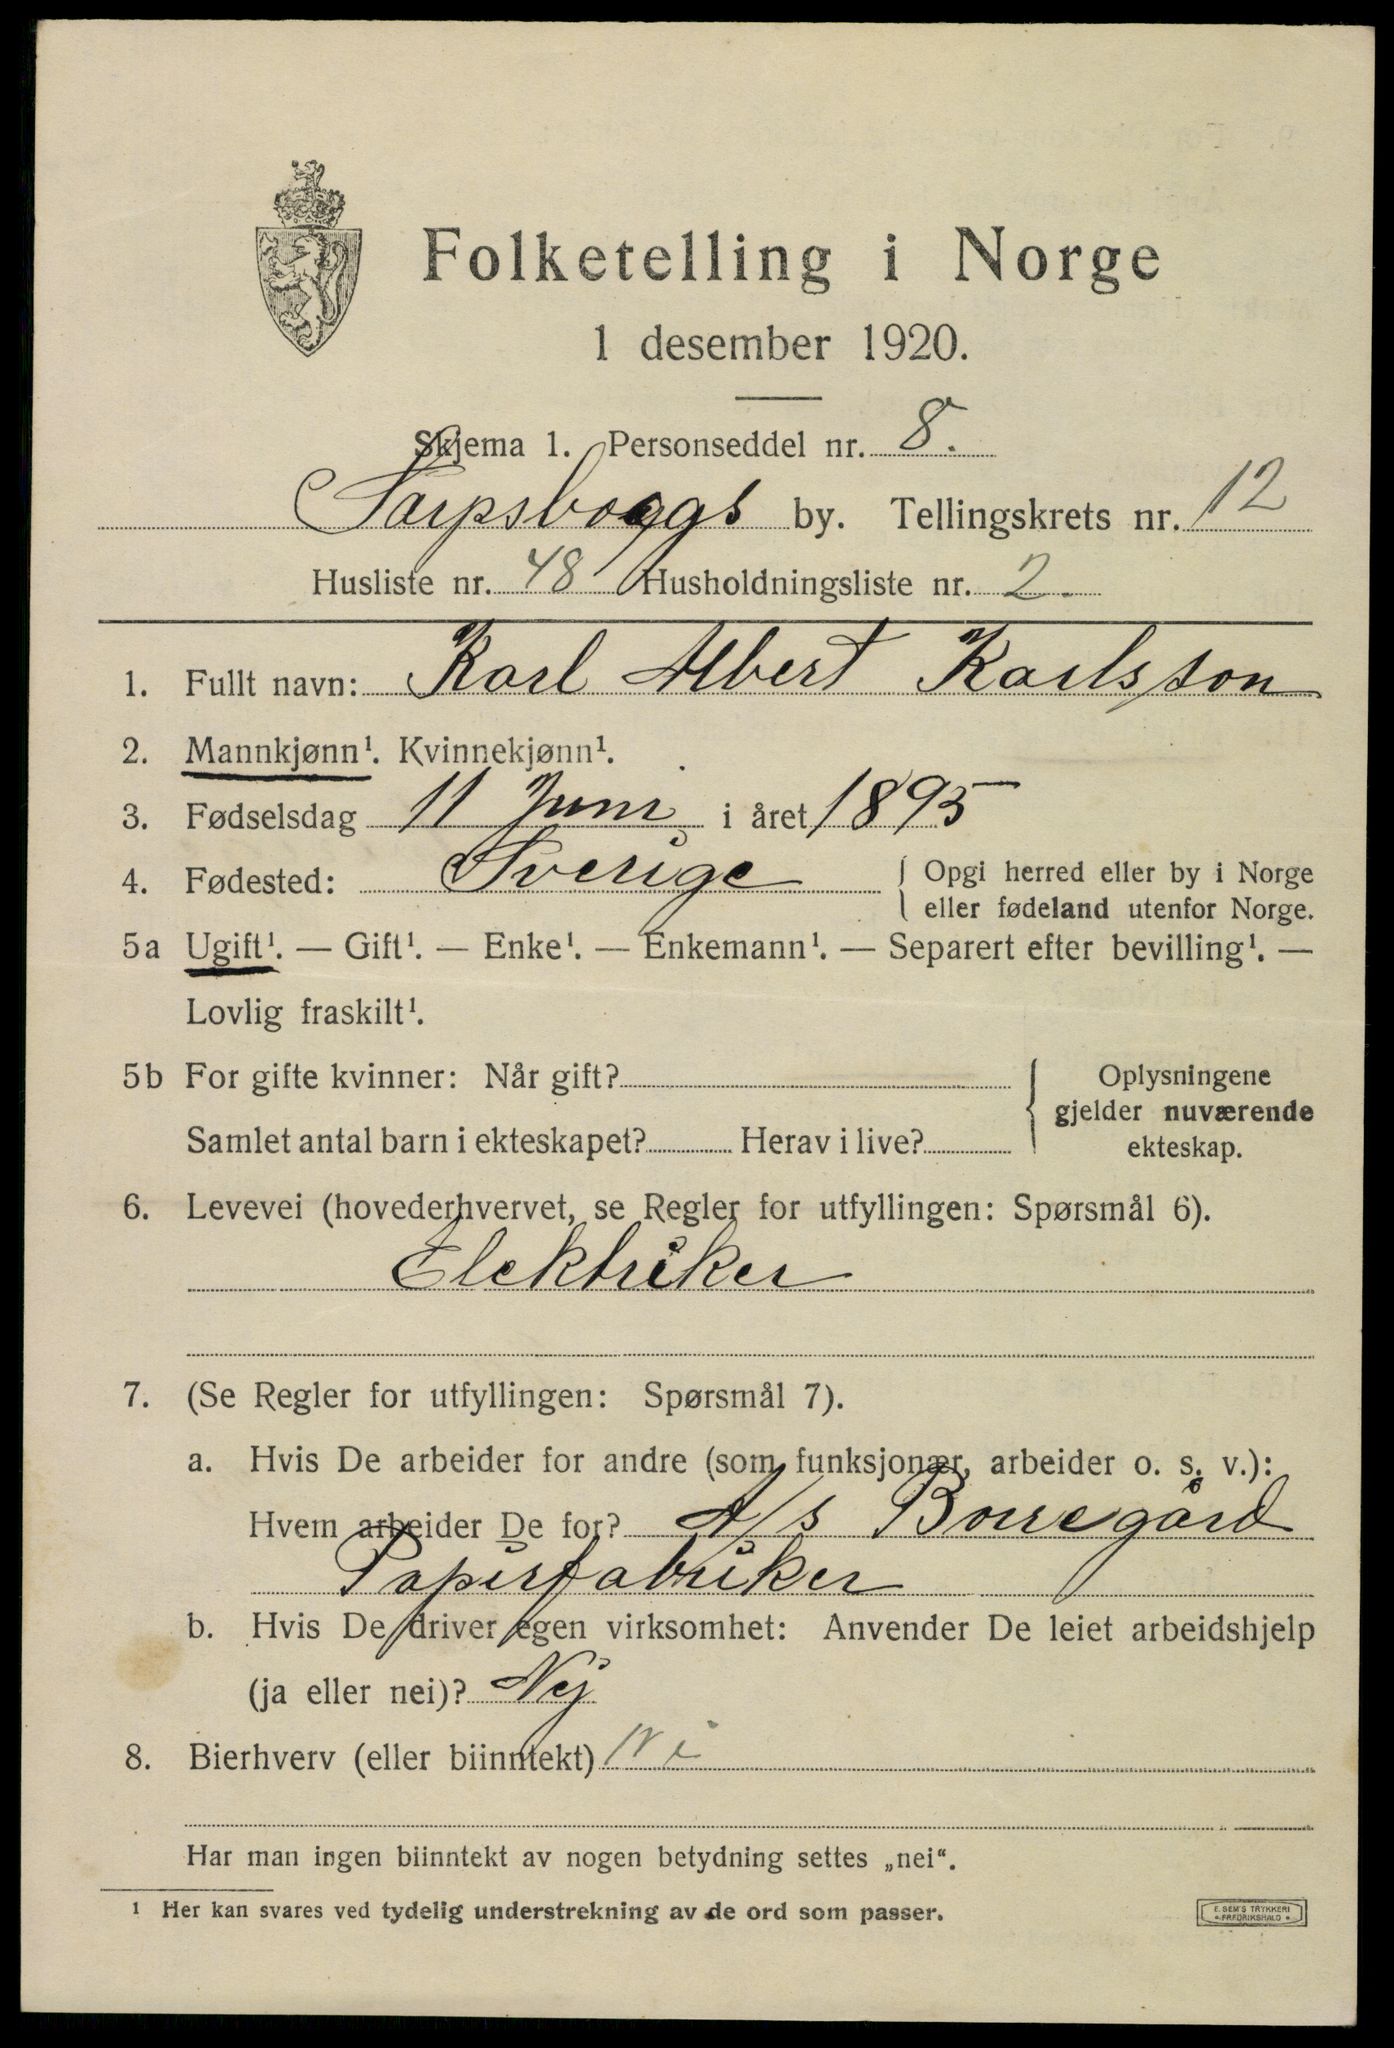 Folketelling i Norge
1 desember 1920.
Skjema 1. Personseddel nr. 8.
Sarpsborgs by. Tellingskrets nr. 12
Husliste nr. 48 Husholdningsliste nr. 2.
1. Fullt navn: Karl Albert Karlsson
2. Mannkjønn¹. Kvinnekjønn¹.
3. Fødselsdag 11 Juni i året 1895
4. Fødested: Sverige { Opgi herred eller by i Norge
eller fødeland utenfor Norge.
5a Ugift¹. — Gift¹. — Enke¹. — Enkemann¹. — Separert efter bevilling¹. —
Lovlig fraskilt¹.
5b For gifte kvinner: Når gift? { Oplysningene
gjelder nuværende
Samlet antal barn i ekteskapet? Herav i live? ekteskap.
6. Levevei (hovederhvervet, se Regler for utfyllingen: Spørsmål 6).
Elektriker
7. (Se Regler for utfyllingen: Spørsmål 7).
a. Hvis De arbeider for andre (som funksjonær, arbeider o. s. v.):
Hvem arbeider De for? A/s Borregård
Papirfabriker
b. Hvis De driver egen virksomhet: Anvender De leiet arbeidshjelp
(ja eller nei)? Nej
8. Bierhverv (eller biinntekt)
Har man ingen biinntekt av nogen betydning settes „nei“.
¹ Her kan svares ved tydelig understrekning av de ord som passer.
E. SEM'S TRYKKERI
FREDRIKSHALD